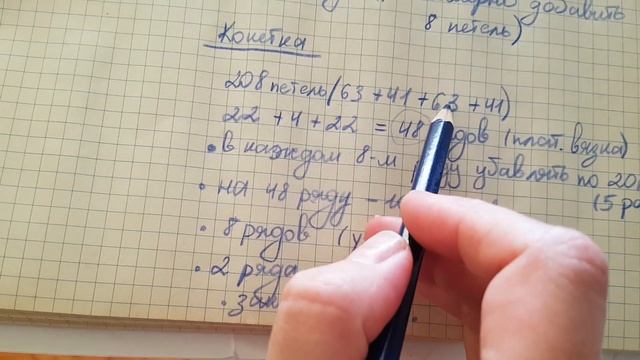 добавить
8 петель)
Кокетка
208 петель (63+41+63+41)
22+4+22 = 48 рядов (плат. вязка)
• в каждом 8-м ряду убавлять по 20
• на 48 ряду –
(5 ра
• 8 рядов (у
• 2 ряда
•